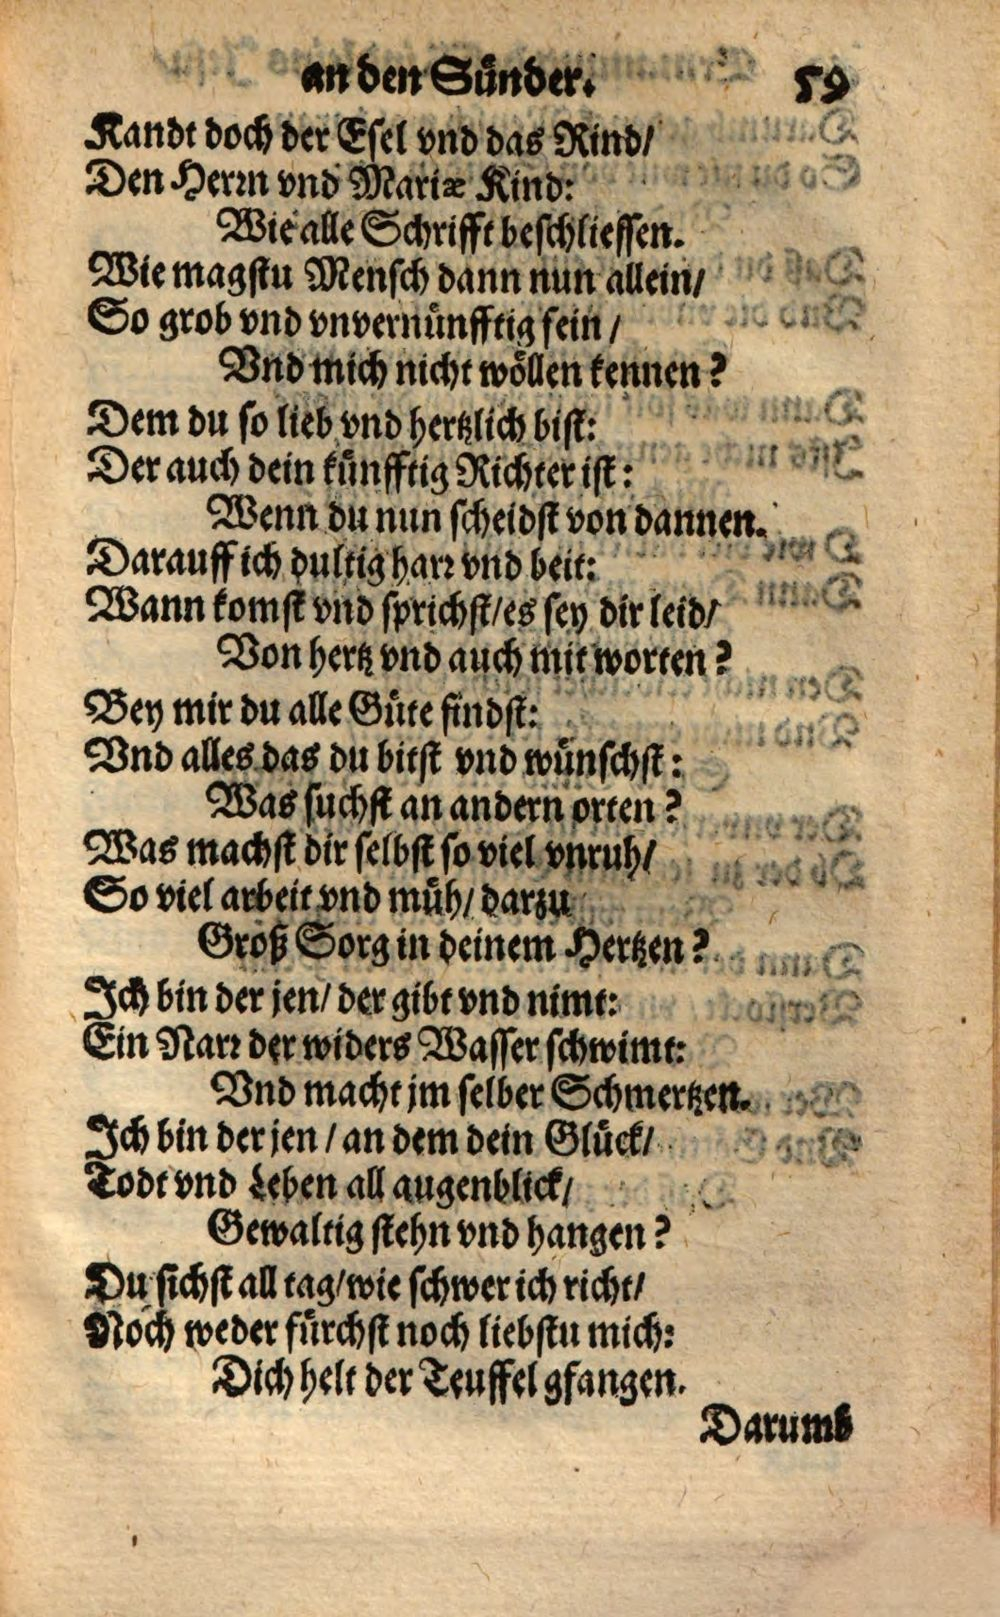 an den Sünder. 59
Kandt doch der Esel vnd das Rind/
Den Herrn vnd Mariæ Kind:
Wie alle Schrifft beschliessen.
Wie magstu Mensch dann nun allein/
So grob vnd vnvernünfftig sein /
Vnd mich nicht wöllen kennen?
Dem du so lieb vnd hertzlich bist:
Der auch dein künfftig Richter ist:
Wenn du nun scheidst von dannen.
Darauff ich dultig harr vnd beit:
Wann komst vnd sprichst/es sey dir leid/
Von hertz vnd auch mit worten?
Bey mir du alle Güte findst:
Vnd alles das du bitst vnd wünschst:
Was suchst an andern orten?
Was machst dir selbst so viel vnruh/
So viel arbeit vnd müh/ darzu
Groß Sorg in deinem Hertzen?
Ich bin der jen/ der gibt vnd nimt:
Ein Narr der widers Wasser schwimt:
Vnd macht jm selber Schmertzen.
Ich bin der jen / an dem dein Glück/
Todt vnd Leben all augenblick/
Gewaltig stehn vnd hangen?
Du sichst all tag/wie schwer ich richt/
Noch weder fürchst noch liebstu mich:
Dich helt der Teuffel gfangen.
Darumb